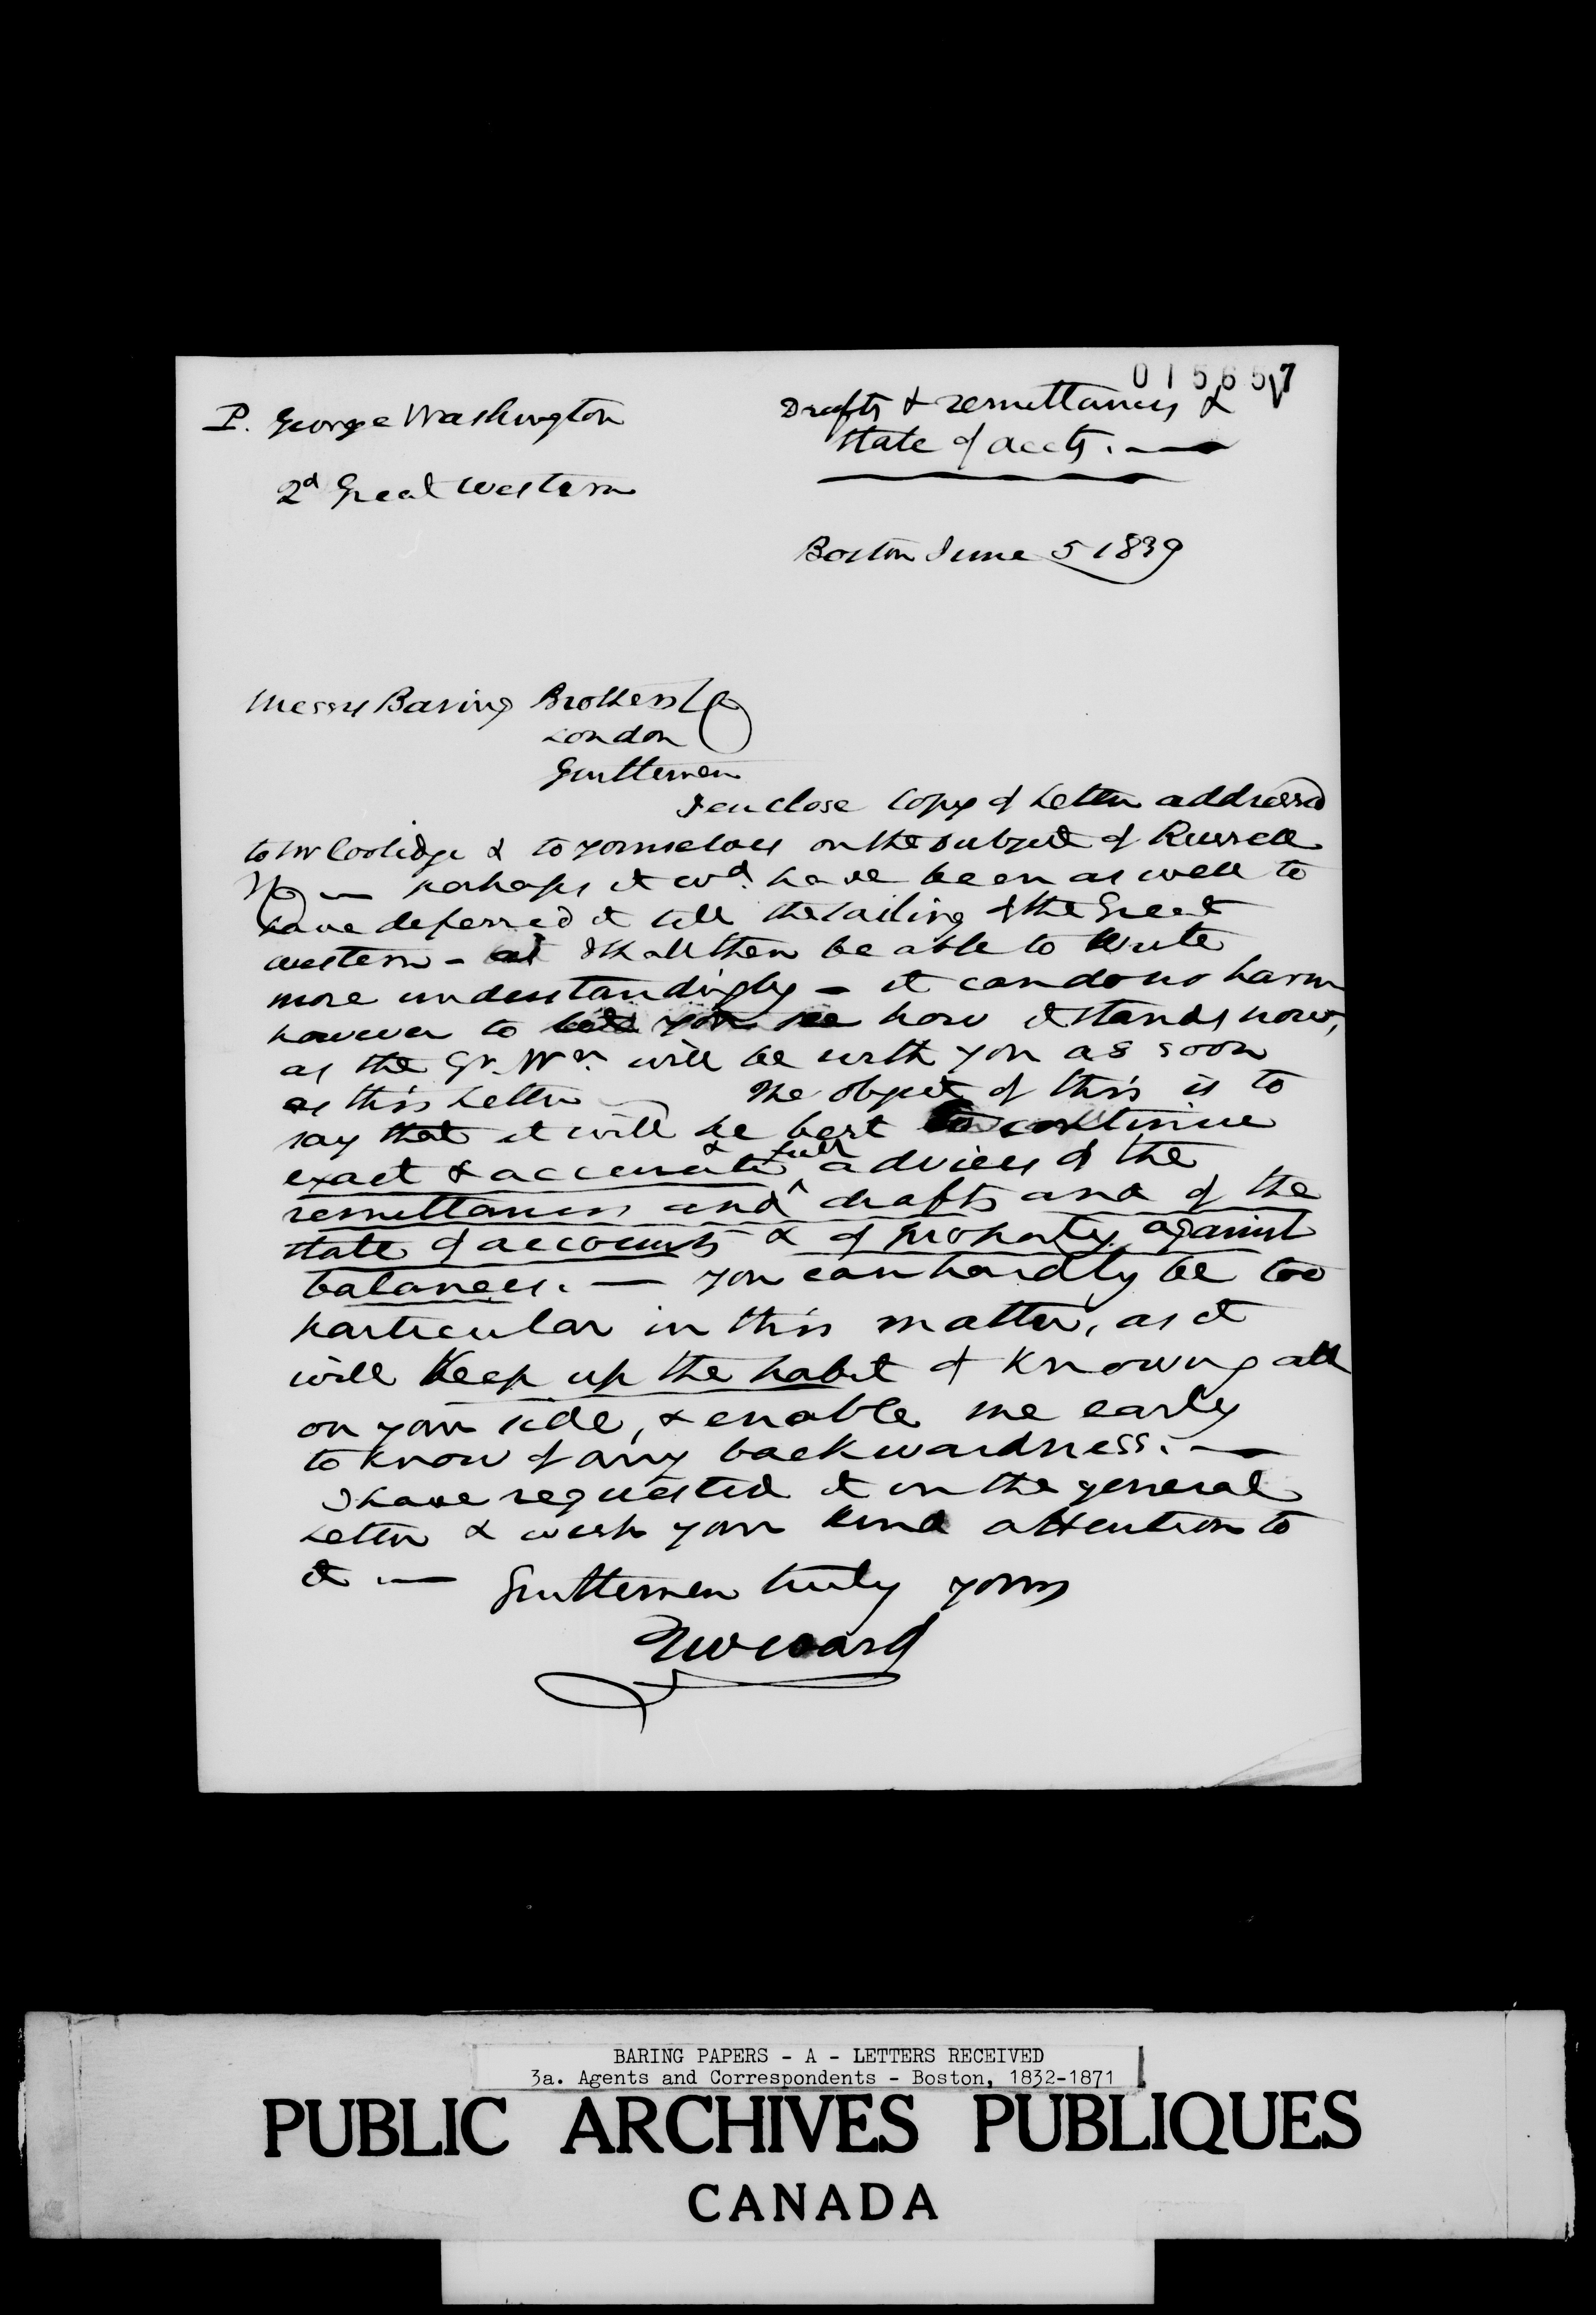 015657
P. George Washington
2d Great Western
Drafts & remittances &
state of accts. —
Boston June 5 1839
Messrs Baring Brothers & Co
London
Gentlemen
I enclose copy of Letter addressed
to Mr Coolidge & to yourselves on the subject of Russell
& Co — perhaps it wd. have been as well to
have deferred it till the sailing of the Great
Western - as I shall then be able to write
more understandingly - it can do no harm
however to let you see how it stands now,
as the Gr. Wn. will be with you as soon
as this Letter — The object of this is to
say that it will be best to continue
exact & accurate & full advices of the
remittances and drafts and of the
state of accounts & of property against
balances. — You can hardly be too
particular in this matter, as it
will keep up the habit of knowing all
on your side, & enable me early
to know of any backwardness. —
I have requested it in the general
Letter & wish your kind attention to
it. — Gentlemen truly yours
T W Ward
BARING PAPERS - A - LETTERS RECEIVED
3a. Agents and Correspondents - Boston, 1832-1871
PUBLIC ARCHIVES PUBLIQUES
CANADA